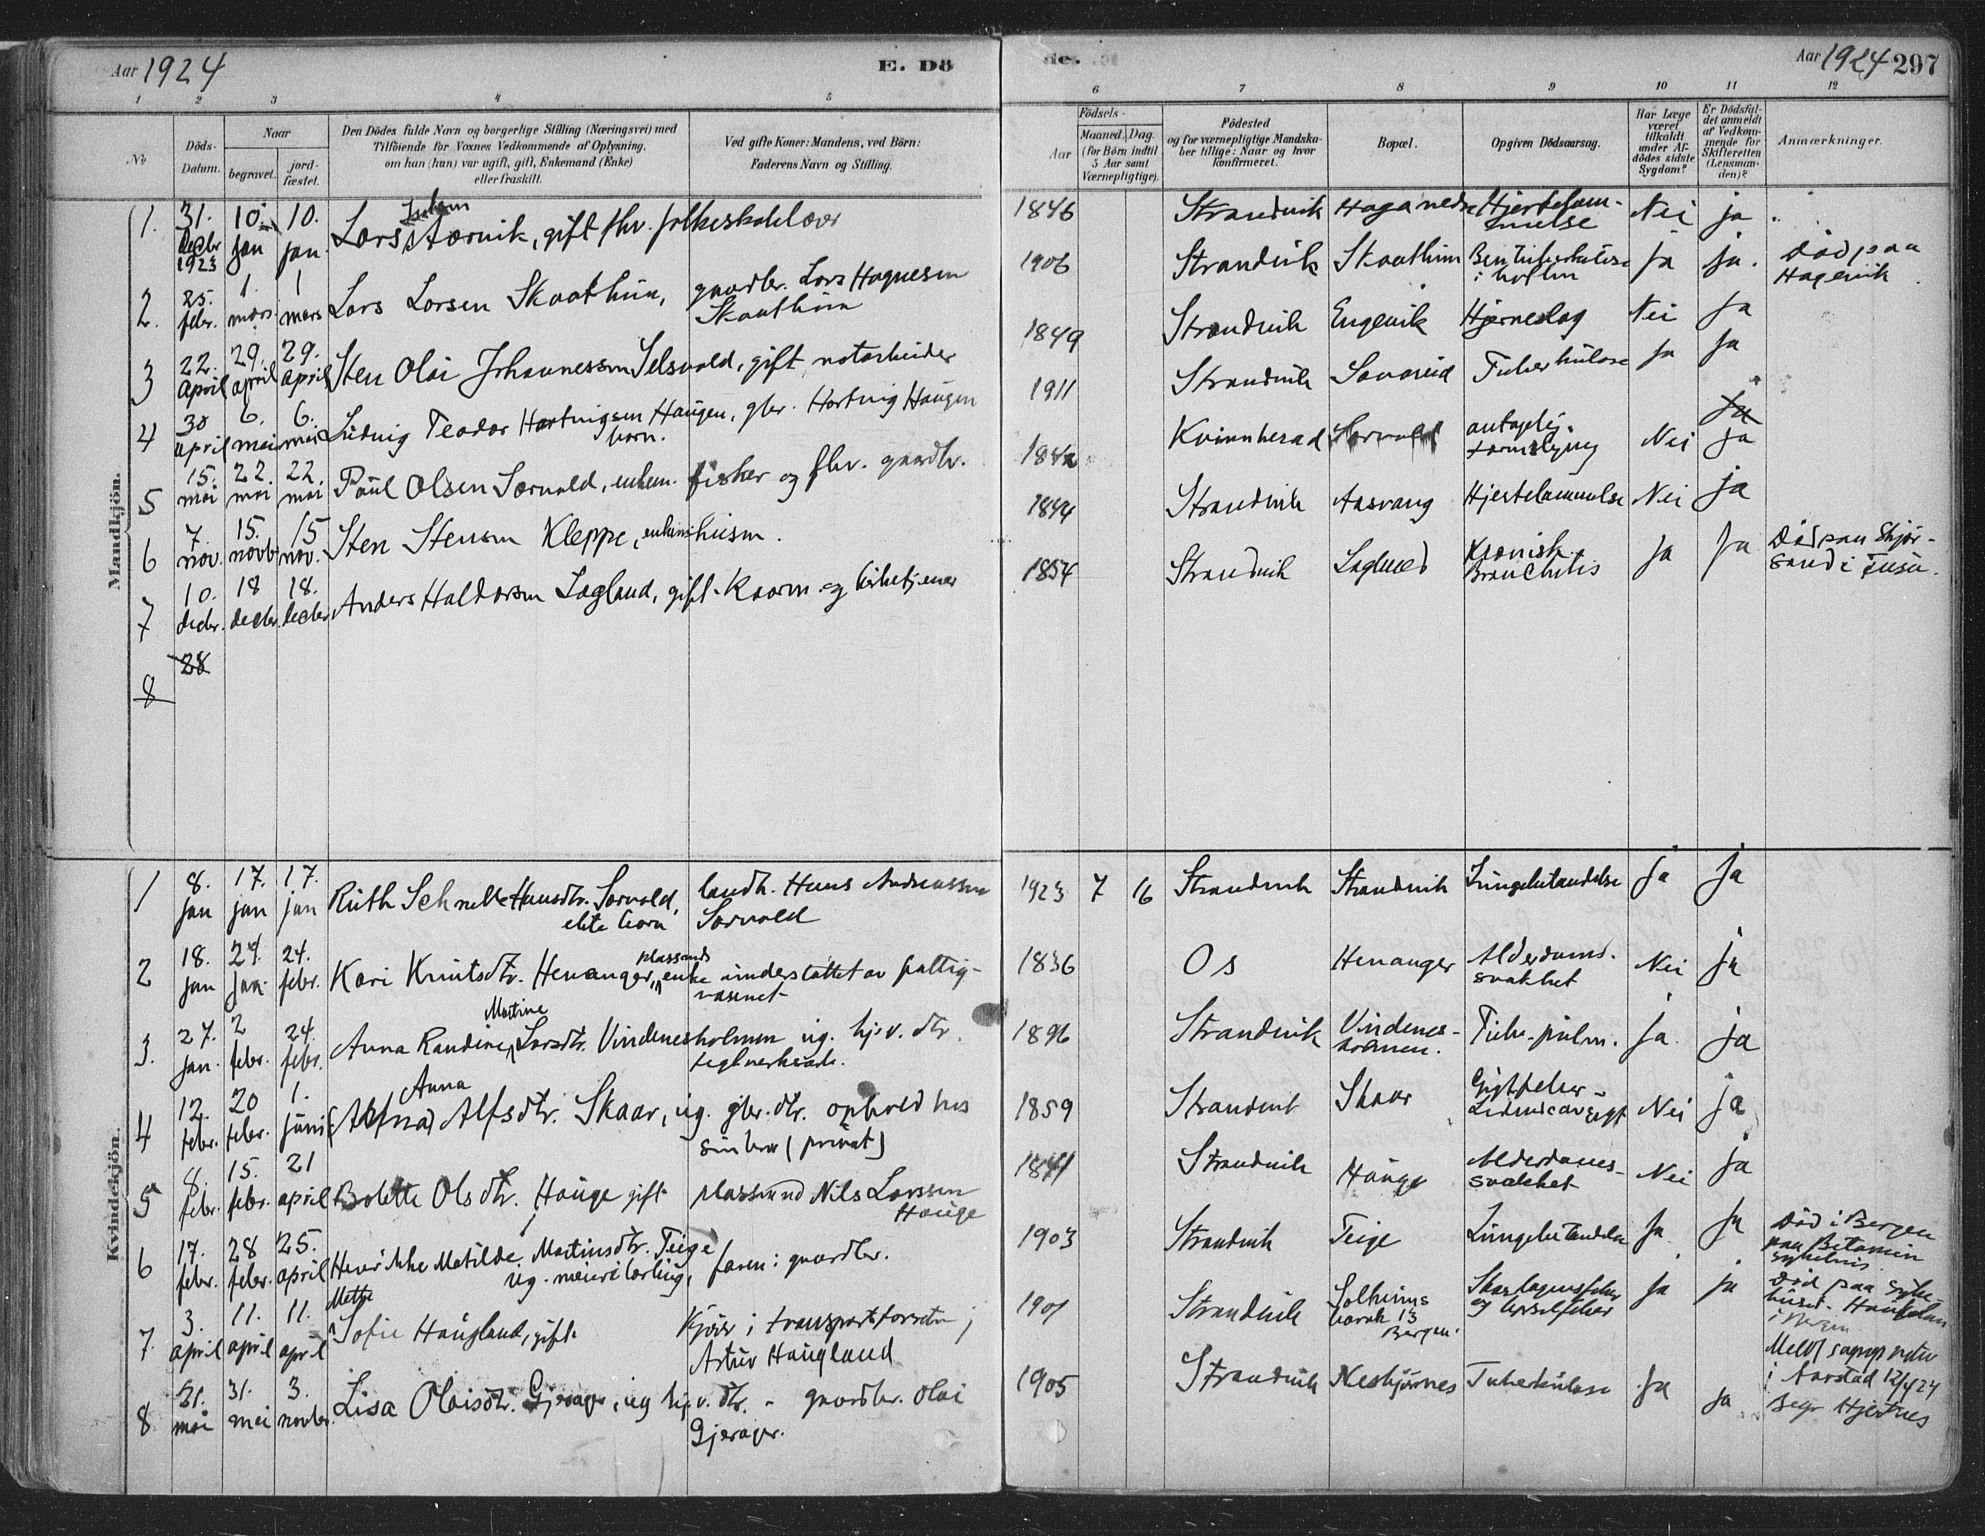 Aar 1924
E. Dö
de.
Aar 1924 297
1 2 3 4 5 6 7 8 9 10 11 12
No
Döds-Datum.
Naar
begravet.
jordfæstet.
Den Dödes fulde Navn og borgerlige Stilling (Næringsvei) med
Tilföiende for Voxnes Vedkommende af Oplysning,
om han (hun) var ugift, gift, Enkemand (Enke)
eller fraskilt.
Ved gifte Koner: Mandens, ved Börn:
Faderens Navn og Stilling.
Födsels-
Aar
Maaned. Dag.
(for Börn indtil
5 Aar samt
Værnepligtige).
Födested
og for værnepligtige Mandska-
ber tillige: Naar og hvor
konfirmeret.
Bopæl.
Opgiven Dödsaarsag.
Har Læge
været
tilkaldt
under Af-
dödes sidste
Sygdom?
Er Dödsfal-
det anmeldt
af Vedkom-
mende for
Skifteretten
(Lensman-
den)?
Anmærkninger.
Mandkjön.
1. 31. decbr 1923 10. jan 10. jan. Lars Størvik, gift fhv. folkeskolelærer 1846 Strandvik Hjertelam-melse Nei ja
2. 25. febr. 1. mars 1 mars Lars Larsen Skaathun, gaardbr. Lars Skaathun 1906 Strandvik Skaathun Bentuberkulose i hoften ja ja. Död paa Hagevik
3 22. April 29. april 29. april Sten Olai Johannessen Selsvold, gift, notarbeider 1849 Strandvik Engevik Hjerneslag Nei ja
4 30 april 6. mai 6. mai Ludvig Teodor Hartvigsen Haugen, gbr. Hartvig Haugen
barn. 1911 Strandvik Sævareid Tuberkulose ja ja
5 15. mai 22. mai 22. mai Paul Olsen Sørvold, enkem. fisker og fhv. gaardbr. Kvinnherad Sørvold antagelig tarmslyng Nei ja
6 7. nov. 15. novb 15 nov. Sten Stensen Kleppe, enkem husm. 1844 Strandvik Aasvang Hjertelammelse Nei ja
7 10. decbr. 18 decbr. 18. decbr. Anders Haldorsen Lægland, gift. kaarm. og kirketjener 1854 Strandvik Lægland Kronisk Bronchitis ja ja Död paa Skjør-sand i Fusa.
8 28
Kvindekjön.
1 8. jan 17. jan 17. jan Ruth Hansdtr. Sørvold,
ekte barn landh. Hans Andreassen
Sørvold 1923 7 16 Strandvik Strandvik Lungebetændelse ja ja
2 18. jan 24. jan. 24. febr. Kari Knutsdtr. Henanger, plassmds enke understöttet av fattig-
væsenet 1836 Os Henanger Alderdoms.
svakhet Nei ja
3. 27. jan. 2 febr. 24. febr. Anna Randine Martine Larsdtr. Vindenesholmen ug. hjv. dtr.
teglverksarb. 1896 Strandvik Vindenes-
holmen. Tub. pulm. ja. ja
4 12. febr. 20 febr. 1. juni Anna Alfsdtr. Skaar, ug. gbr. dtr. ophold hos
sin bror (privat) 1859 Strandvik Skaar Gigtfeber - Nei ja
5 8. febr. 15. febr. 21 april Bolette Olsdtr. Hauge gift plassmand Nils Larssen
Hauge 1841 Strandvik Hauge Alderdoms-
svakhet Nei ja
6 17. febr. 28 febr. 25. april Henrikke Matilde Martinsdtr. Teige
ug. meierilærling, faren: gaardbr. 1903 Strandvik Teige Lungebetændelse ja. ja Död i Bergen
paa Betanien
sykehus.
7. 3. april 11. april 11. april Mette Sofie Haugland, gift. Kjører i transportforretn.;
Artur Haugland 1901 Strandvik Solheims
13
Bergen. Skarlagensfeber
og barselfeber ja ja Död paa syke-
huset Haukeland
i Bergen
8 31. mai 31. mai 3. novbr. Lisa Olaisdtr. Gjerager, ug hjv. dtr. - gaardbr. Olai
Gjerager. 1905 Strandvik Nesbjørnes Tuberkulose ja ja
i Aarstad 12/4 24